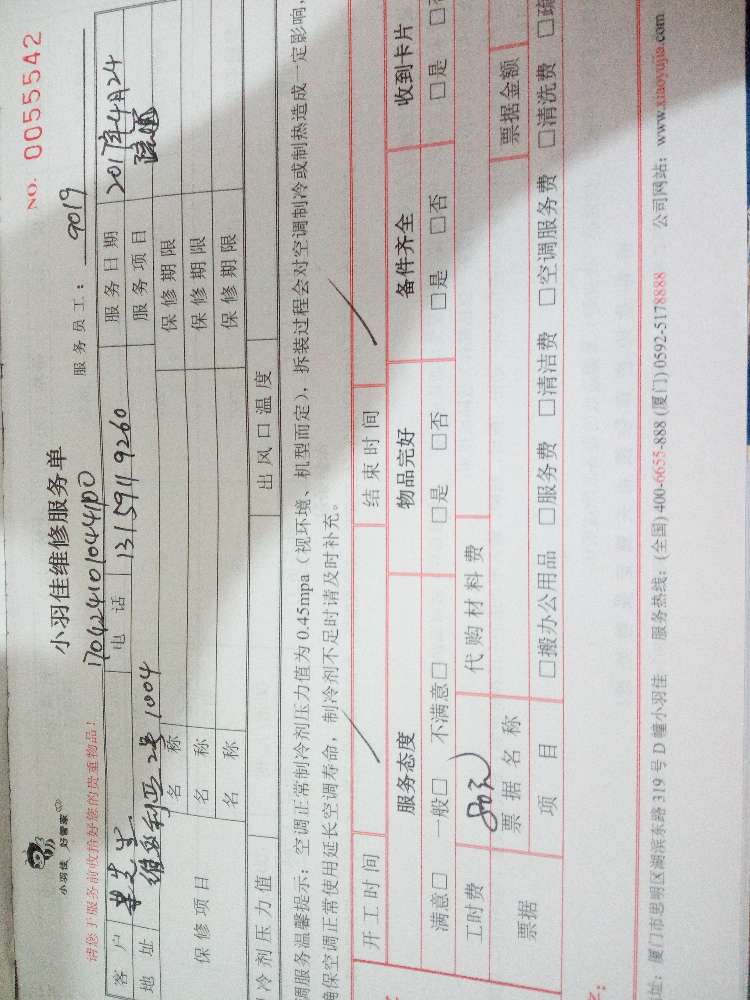 小羽佳 好管家
NO. 0055542
小羽佳维修服务单
请您于服务前收拾好您的贵重物品！
服务员工： 9019
客户 先生 电话 13159119260 服务日期 2017年4月24
地址 维多利亚 2号 1004 服务项目
保修项目 名称 保修期限
名称 保修期限
名称 保修期限
冷剂压力值 出风口温度
调服务温馨提示：空调正常制冷剂压力值为 0.45mpa（视环境、机型而定），拆装过程会对空调制冷或制热造成一定影响，
确保空调正常使用延长空调寿命，制冷剂不足时请及时补充。
开工时间 结束时间
服务态度 物品完好 备件齐全 收到卡片
满意□ 一般□ 不满意□ □是 □否 □是 □否 □是
工时费 80元 代购材料费
票据 票据名称 票据金额
项目 □搬办公用品 □服务费 □清洁费 □空调服务费 □清洗费
址：厦门市思明区湖滨东路 319 号 D 幢小羽佳 服务热线：(全国) 400-6655-888 (厦门) 0592-5178888 公司网站：www.xiaoyujia.com